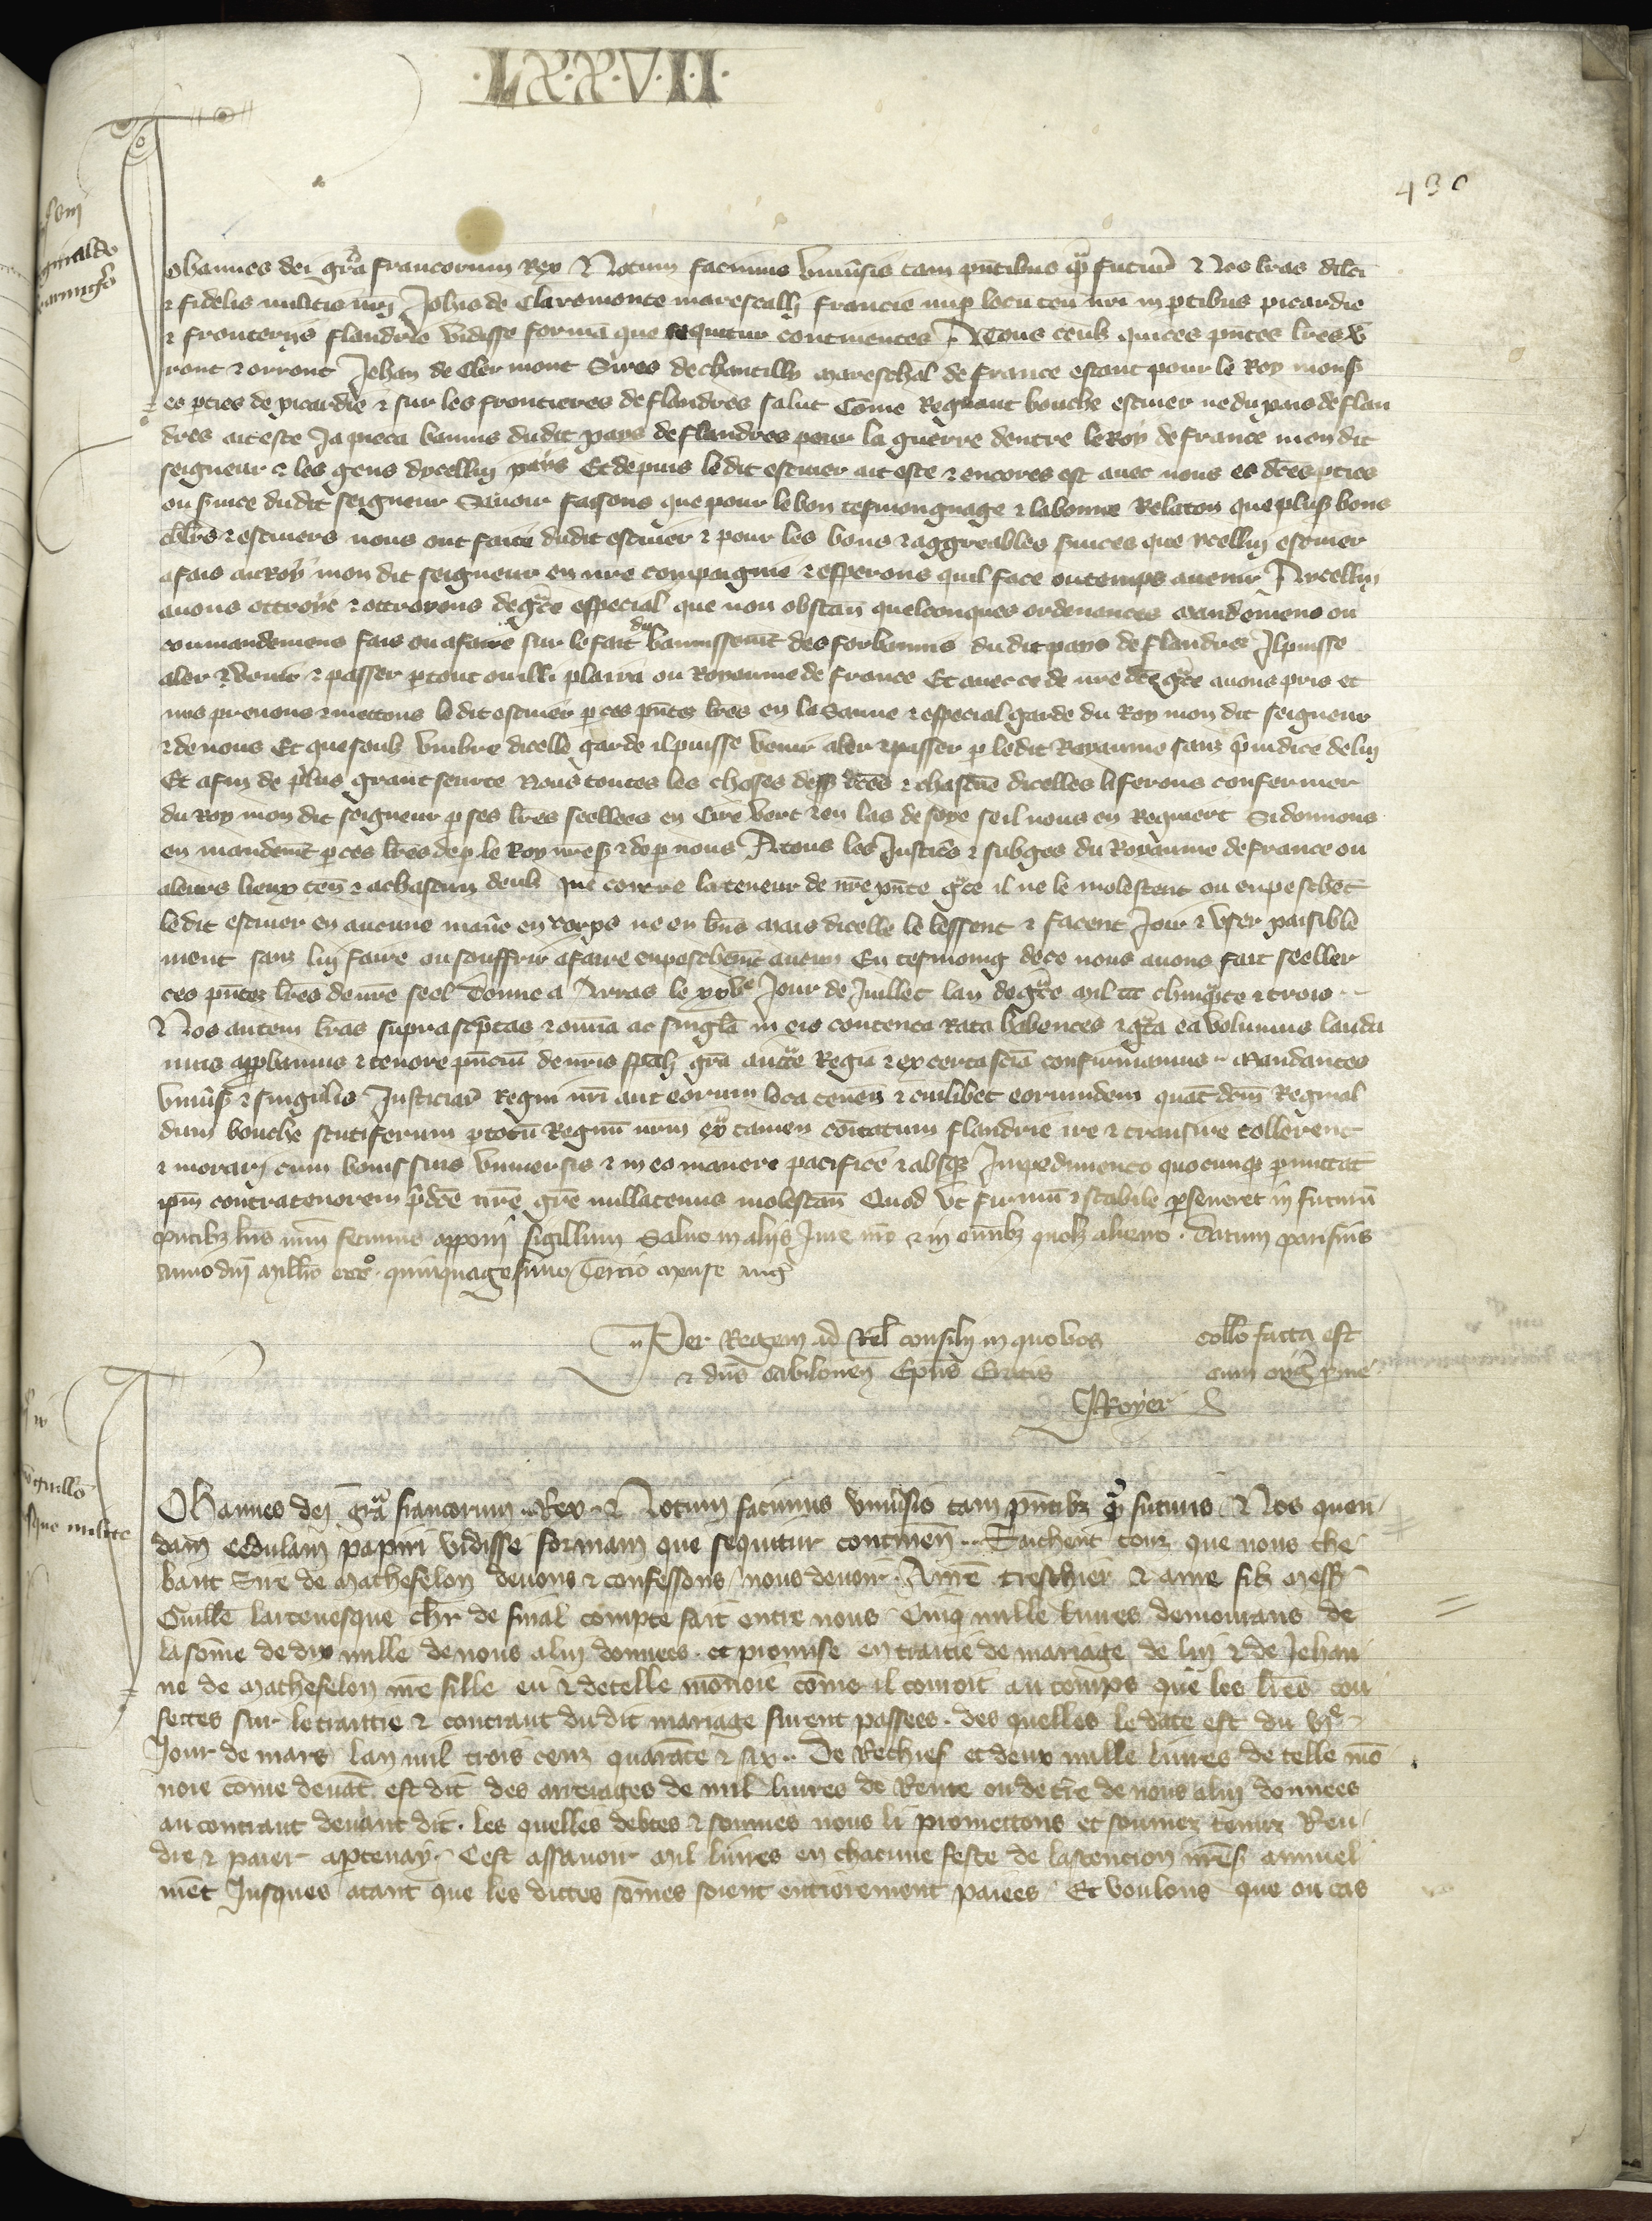 LXXVII
430
Johannes dei gra francorum Rex Notum facimus Univsis tam pntibus qm futur Nos lras dilci
& fidelis militis nri Johis de Claromonte marescalli francie nup locu ten nri in ptibus picardie
& fronterijs flandrie vidisse forma que sequitur continentes A Tous ceulx qui ces pntes lres v
ront & orront Jehan de Clermont Sires de chantilly mareschal de france estant pour le Roy mons
es pties de picardie & sur les frontieres de flandres salut Come Regnaut bouche escuier ne du pais de flan
dres ait este Ja pieca bannis dudit pays de flandres pour la guerre dentre le Roy de france mon dit
seigneur & les gens dycelluy pays Et depuis le dit escuier ait este & encores est avec nous es dces pties
ou svice dudit seigneur Savoir faisons que pour le bon tesmongnage & la bonne Relaton que plus bons
chlrs & escuiers nous ont faite dudit escuier & pour les bons & aggreables svices que ycelluy escuier
a fais au Roy mon dit seigneur en nre compaignie & esperons quil face ou temps avenir A ycelluy
avons ottroye & ottroyons de gce especial que non obstan quelconques ordenances mandemens ou
commandemens fais ou a faire sur le fait du bannissemt des forbannis dudit pays de flandres Il puisse
aler & venir & passer ptout ou illi plaira ou Royaume de france Et avec ce de nre dce gce avons pris et
mis prenons & mettons le dit escuier p ces pntes lres en la Sauve & especial garde du Roy mon dit seigneur
& de nous Et que soubz umbre dicelle garde il puisse venir aler & passer p le dit Royaume sans piudice de luy
Et afin de plus grant seurte Nous toutes les choses dess dces & chascune dicelles li ferons confermer
du Roy mon dit seigneur p ses lres seellees en Cire vert & en las de soye se il nous en Requiert Si donnons
en mandemt p ces lres de p le Roy nres & de p nous A tous les Justices & subges du Royaume de france ou
a leurs lieux ten & a chascun deulx que contre la teneur de nre pnte gce il ne le molestent ou enpeschet
le dit escuier en aucune mane en corps ne en bns Mais dicelle le lessent & facent Joir & user paisible
ment sanz luy faire ou souffrir a faire enpeschemt aucun En tesmoing de ce nous avons fait seeller
ces pntes lres de nre seel Donne a Arras le xxve Jour de Juillet lan de gce mil ccc cinqte & trois
Nos autem lras suprascptas & omia ac singla in eis contenta Rata habentes & gta ea volumus lauda
mus appbamus & tenore pncium de nris spali gra aucte Regia & ex certa scia confirmamus Mandantes
Univs & singulis Justiciar Regni nri aut eorum loca tenen & cuilibet eorumdem quat dcm Reginal
dum bouche scutiferum p totu Regnu nrm ex tamen comitatum flandrie ire & transire tollerent
& morari cum bonis suis universis & in eo manere pacifice & absq Impedimento quocunq pmittat
ipm contra tenorem pdce nre gre nullatenus molestan Quod ut firmu & stabile pseveret in futuru
pntibz lris nrm fecimus apponi sigillum Salvo in alijs Jure nro & in omibz quolz alieno Datum parisius
anno dni Millo ccco quinquagesimo Tercio mense aug
Per Regem ad Rel consilij in quo vos
& dns Cabilonen Epus Eratis
JRoyer
collo facta est
cum orig pme
Johannes dei gra francorum Rex Notum facimus univsis tam pntibz qm futuris Nos quen
dam cedulam papiri vidisse formam que sequitur continen Saichent touz que nous the
baut Sire de Mathefelon devons & confessons nous devoir A nre treschier & ame filz Mess
Guille larcevesque chlr de final compte fait entre nous Cinq mille livres demourans de
la some de dix mille de nous a luy donnees et promise en traitie de mariage de luy & de Jehan
ne de Mathefelon nre fille en & de telle monoie come il couroit au temps que les lres con
fectes sur le traittie & contraut du dit mariage furent passees des quelles le date est du vje
Jour de mars lan mil trois cenz quarate & six De Rechief et deux mille livres de telle mo
noie come devat est dit des arrerages de mil livres de Rente ou de tre de nous a luy donnees
au contraut devant dit les quelles debtes & sommes nous li promettons et sommes tenuz Ren
dre & paier a ptenay Cest assavoir mil livres en chacune feste de lascencion nres annuel
met Jusques atant que les dictes somes soient entierement paiees Et voulons que ou cas